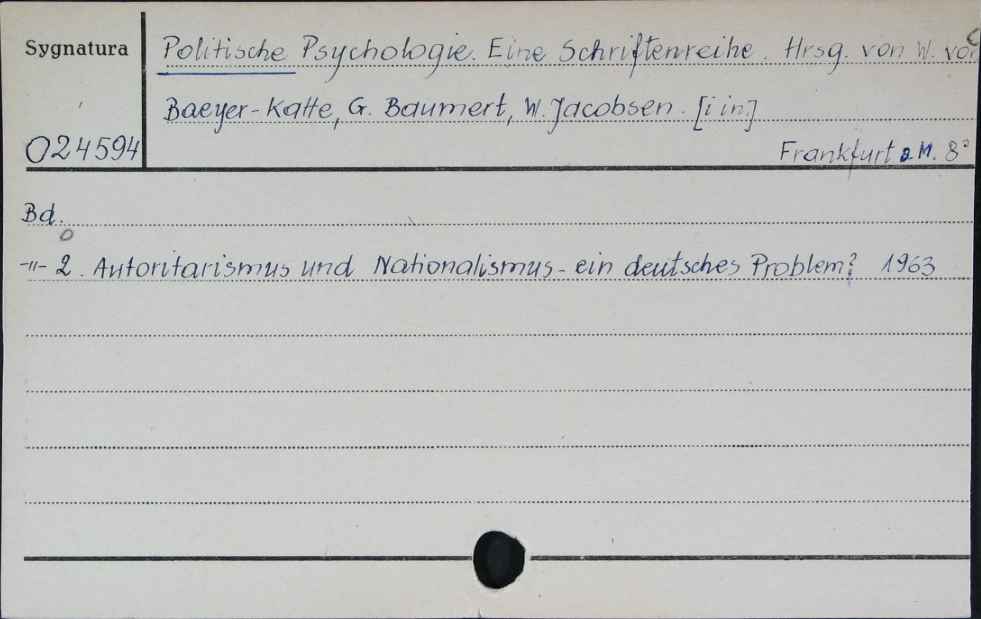 Sygnatura
Politische Psychologie. Eine Schriftenreihe. Hrsg. von W. von
Baeyer-Katte, G. Baumert, W. Jacobsen. [i in.]
024594
Frankfurt a M. 8°
Bd.
-"- 2. Autoritarismus und Nationalismus - ein deutsches Problem? 1963